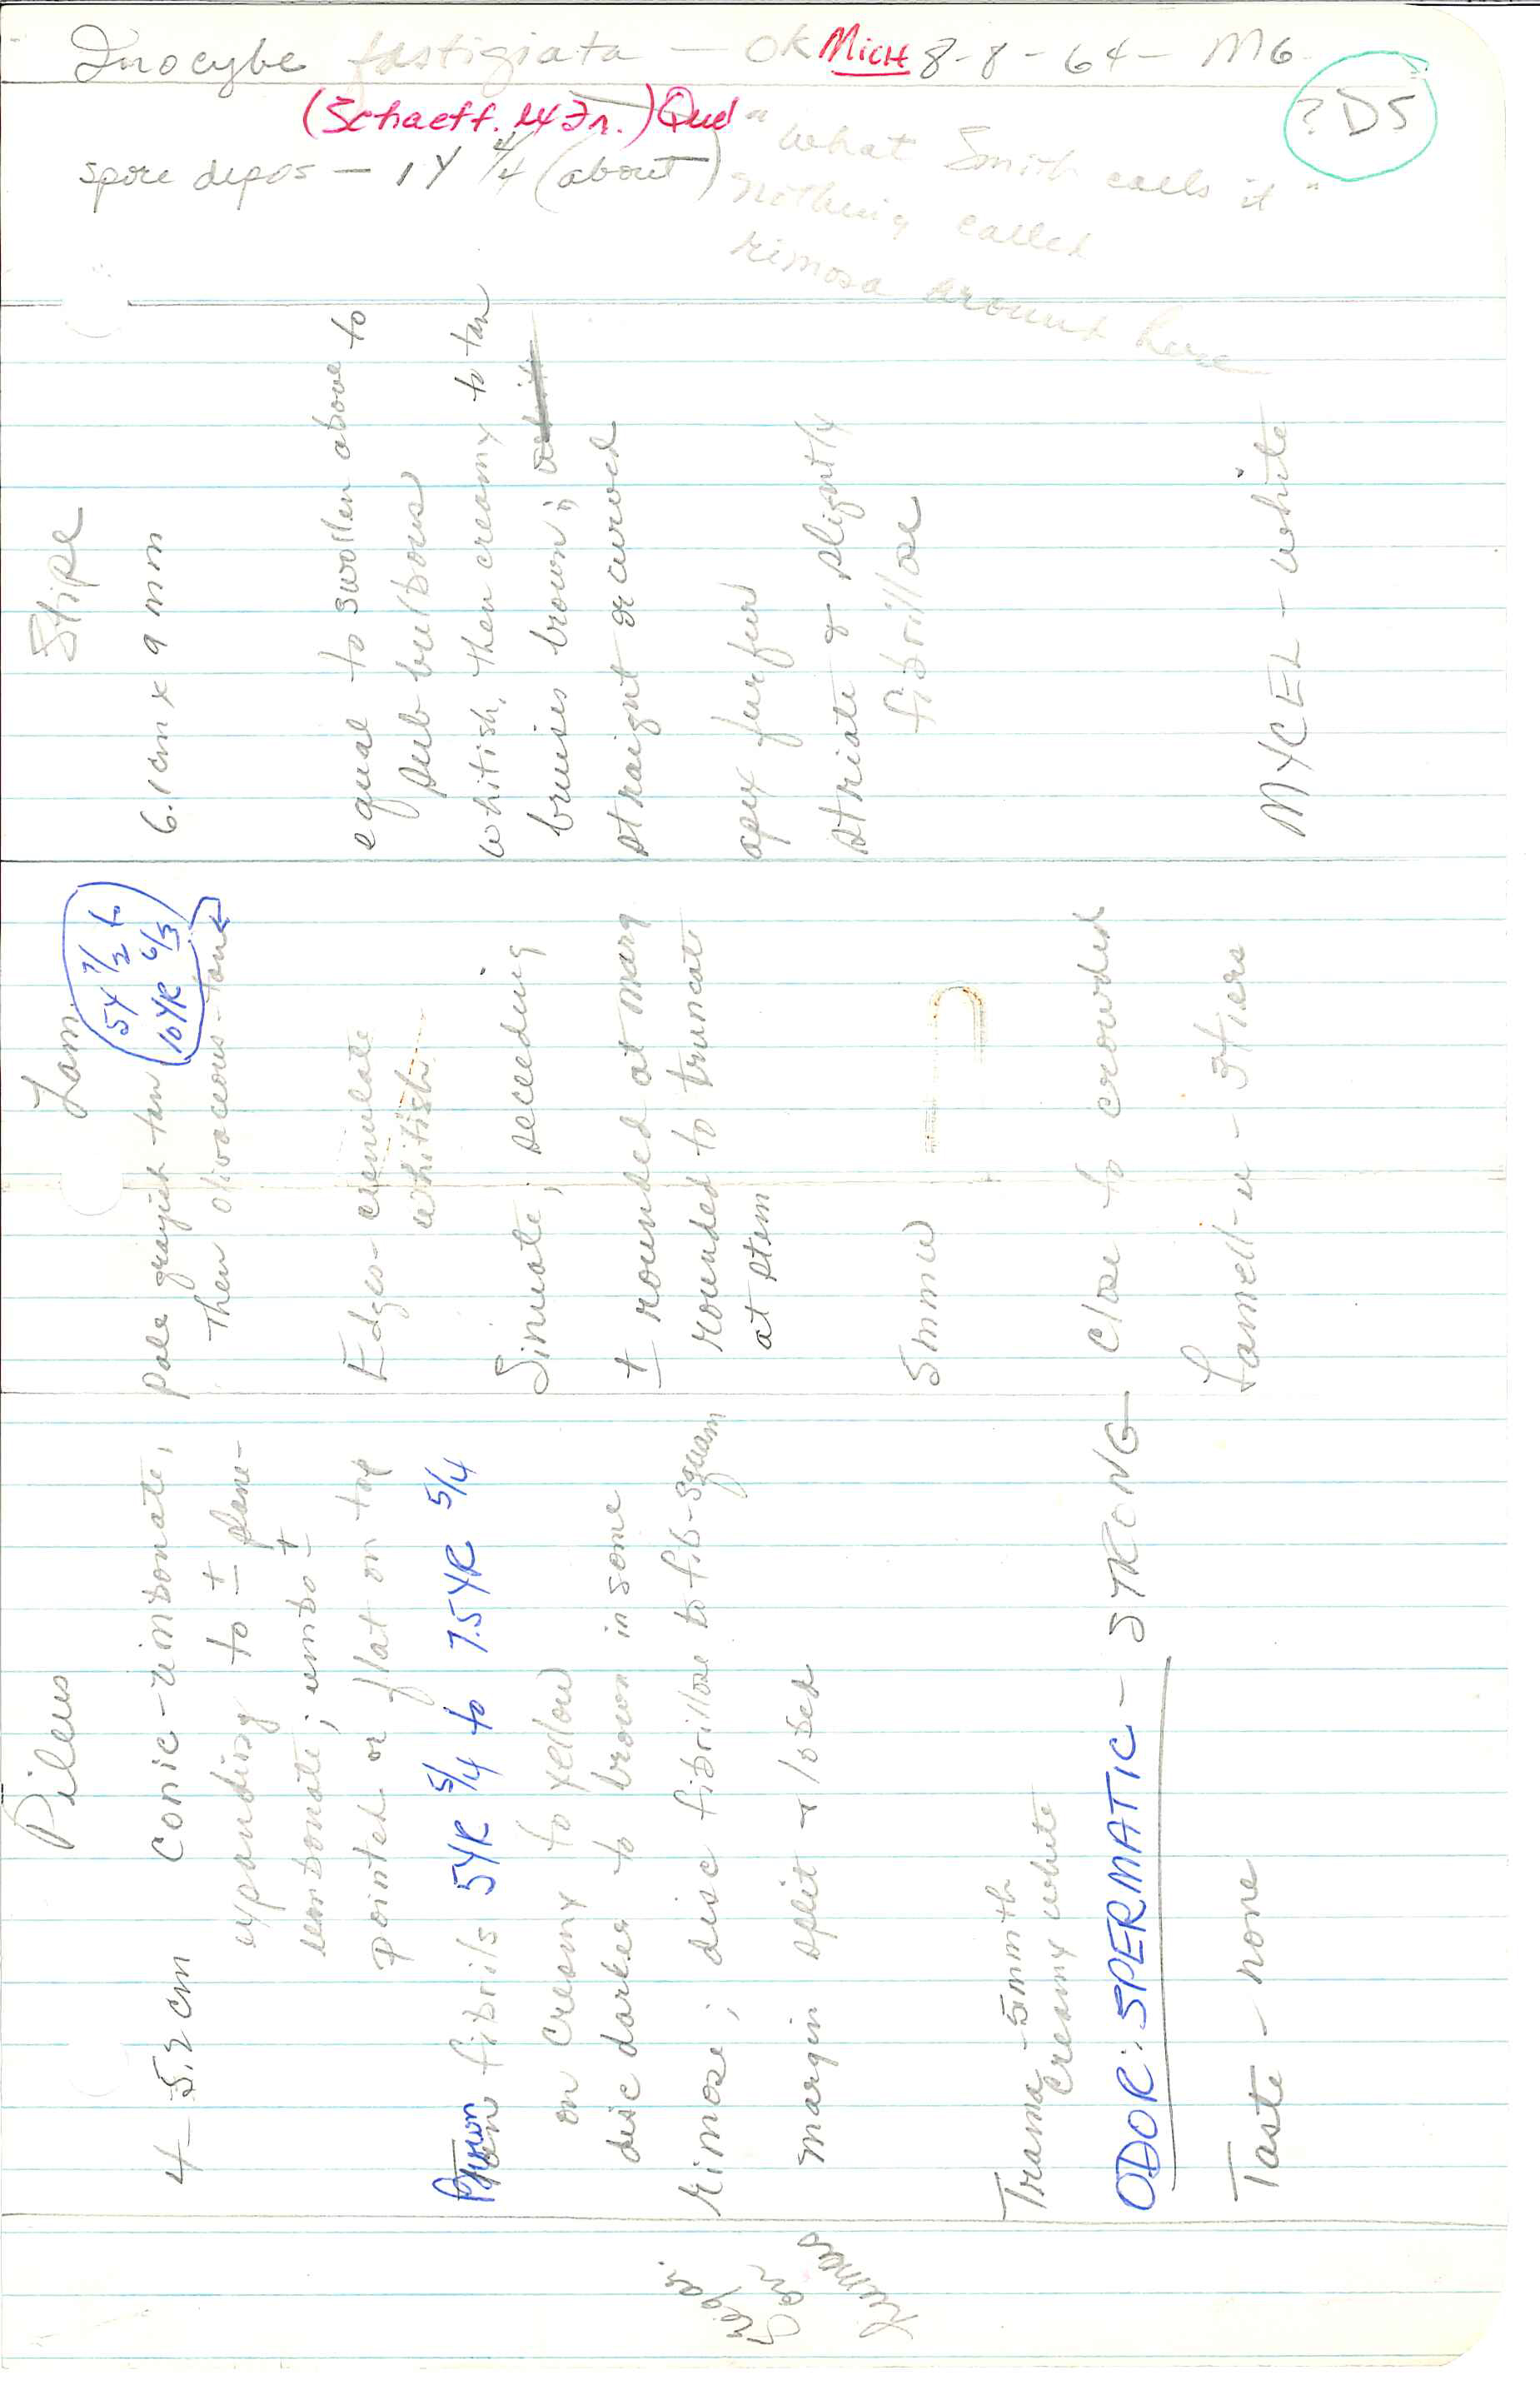 Inocybe fastigiata — OK MICH 8-8-64 — MG
(Schaeff. ex Fr.) Quel
? DS
spore depos — 1Y 4/4 (about)
"What Smith calls it"
nothing called
rimosa around here
Pileus
4–5.2 cm conic-umbonate,
expanding to ± plane-
umbonate; umbo ±
pointed or flat on top
Brown fibrils 5YR 5/4 to 7.5YR 5/4
on creamy to yellow
disc darker to brown in some
rimose; disc fibrillose to fib-squam
margin split & lobed
Trama - 5mm th
creamy white
ODOR: SPERMATIC - STRONG
Taste - none
Lam.
5Y 7/2 to
10YR 6/3
pale grayish tan
then olivaceous-tone
Edges - crenulate
whitish
Sinuate; seceding
± rounded at marg
rounded to truncate
at stem
5mm W
close to crowded
Lamell-u - 3 tiers
Stipe
6.1cm x 9mm
equal to swollen above to
sub bulbous
whitish, then creamy to tan
bruises brown;
straight or curved
apex furfur
striate & slightly
fibrillose
MYCEL - white